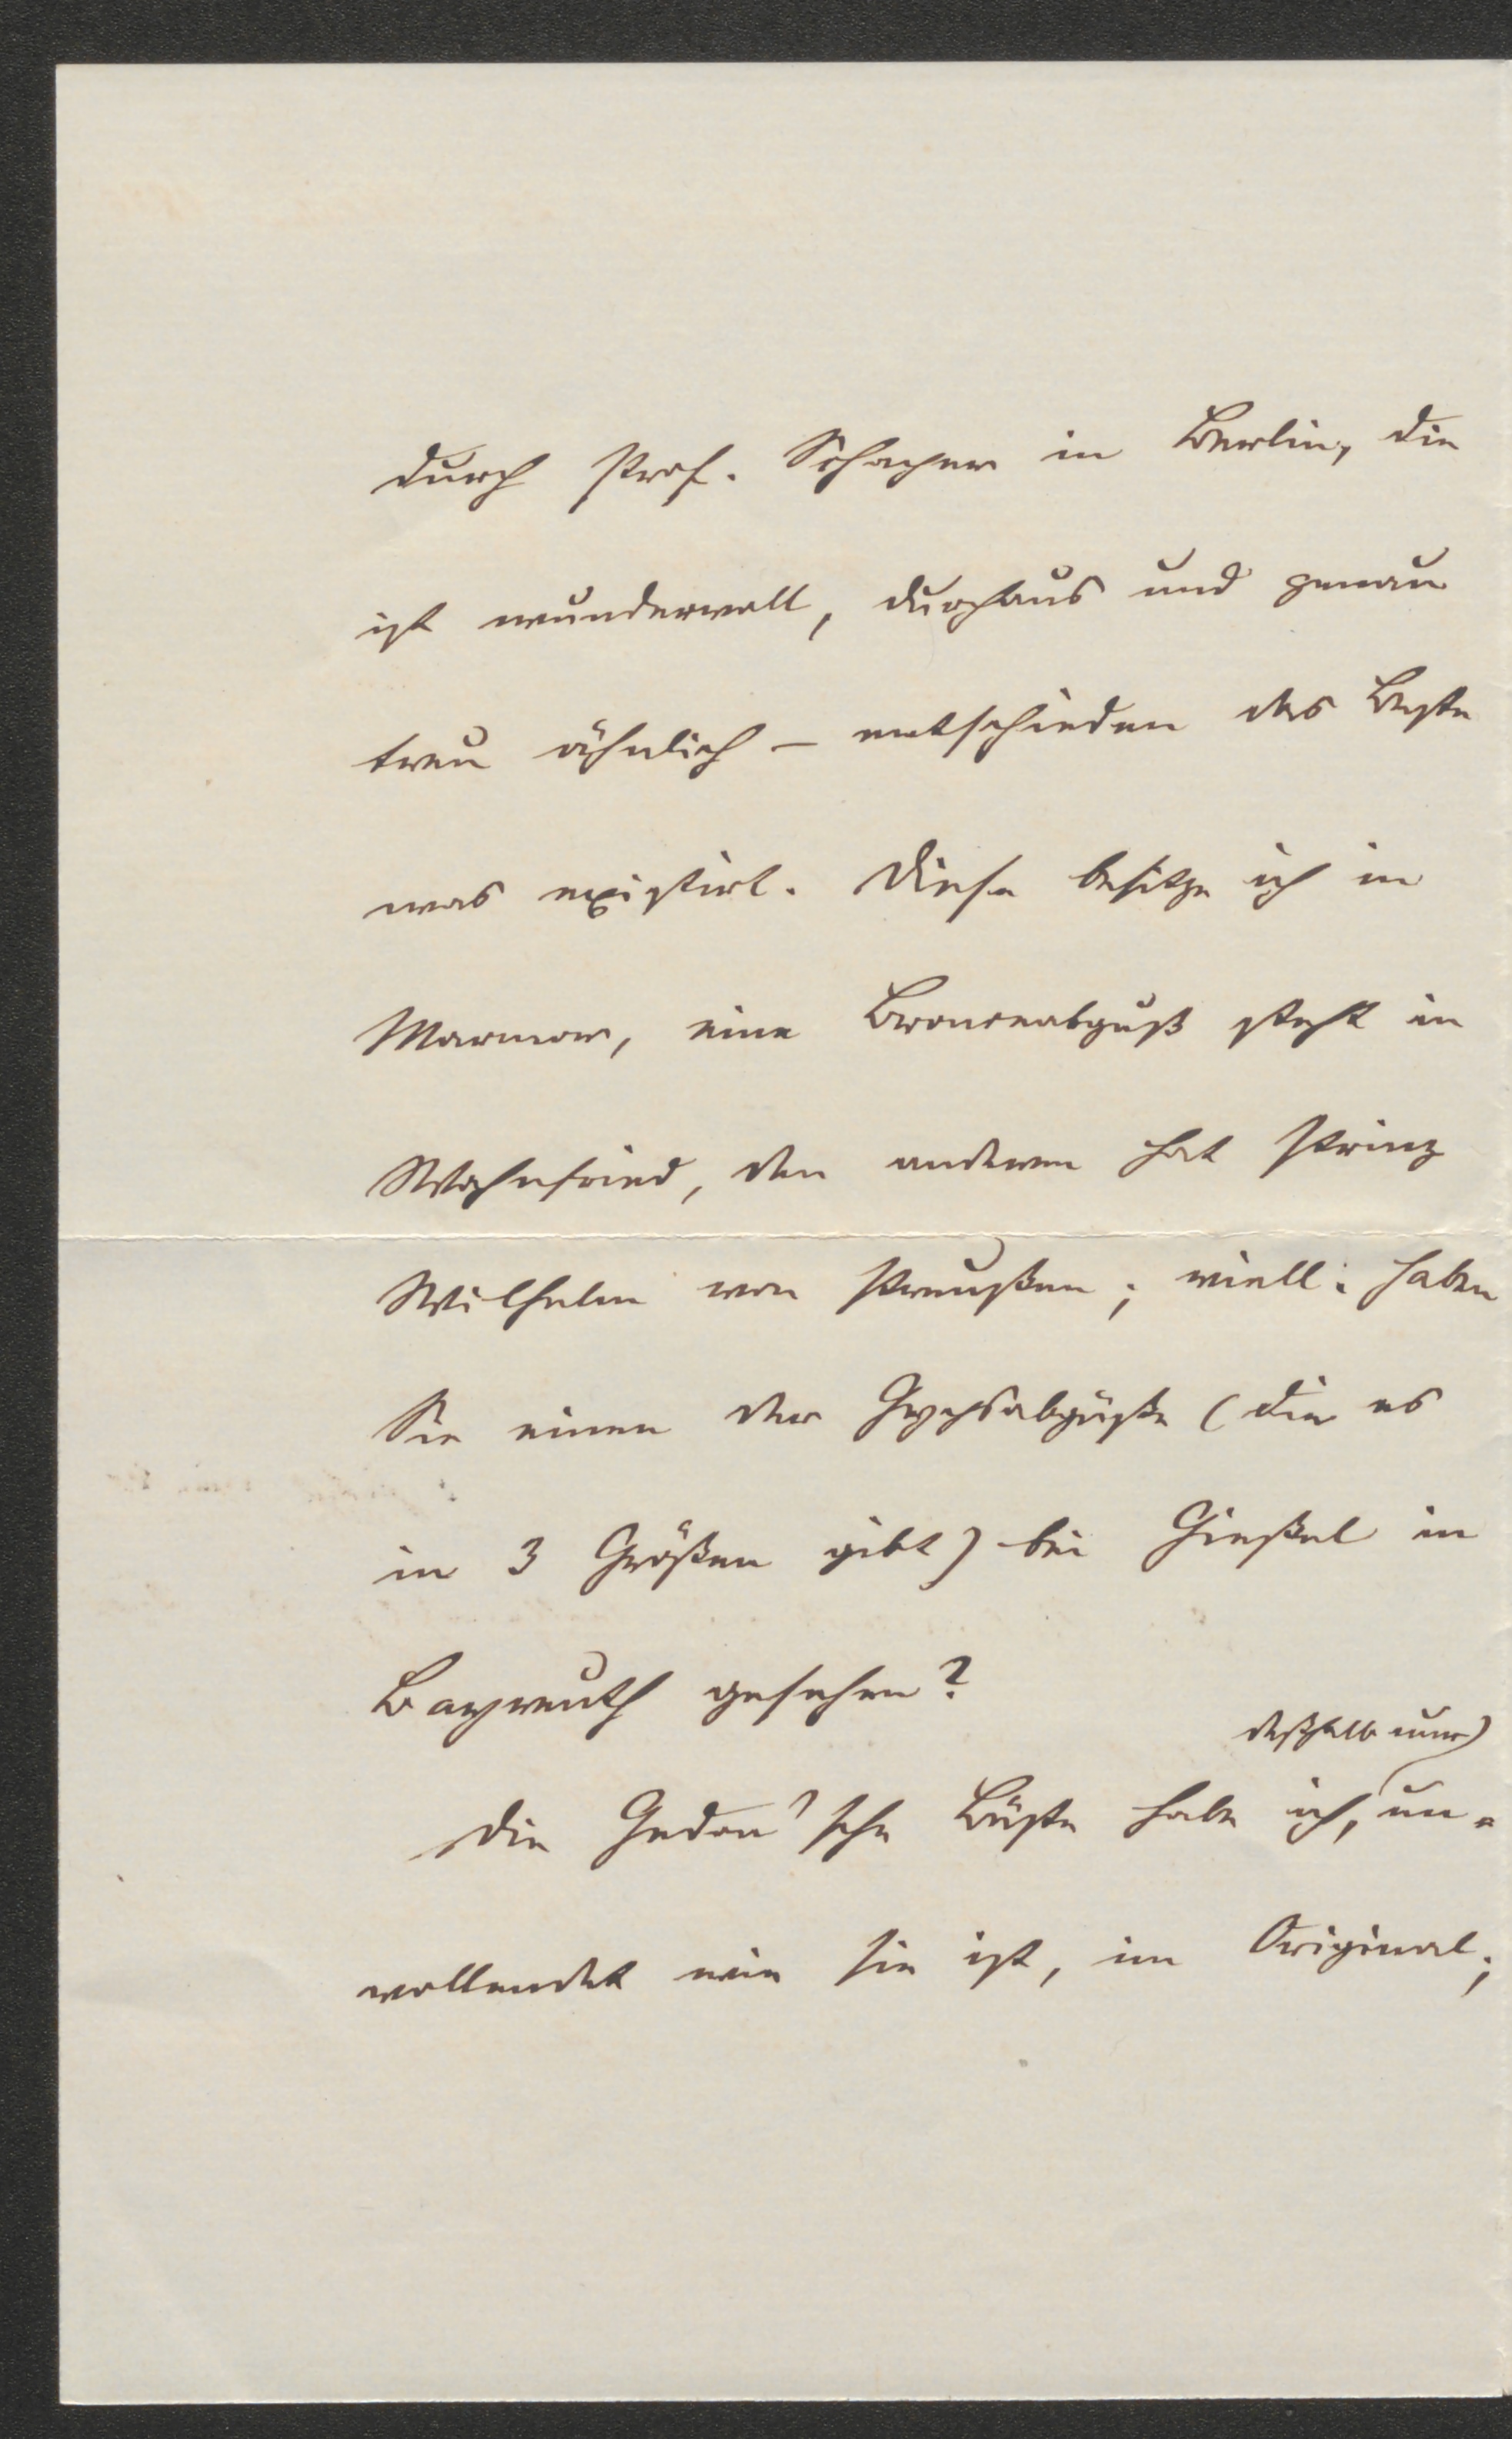 durch Prof. Schaper in Berlin, die
ist wundervoll, durchaus und genau
treu ähnlich – entschieden das Beste
was existirt. Diese besitze ich in
Marmor, eine Bronceabguß steht in
Wahnfried, den anderen hat Prinz
Wilhelm von Preußen; viell. haben
Sie einen der Gypsabgüße (die es
in 3 Größen gibt) bei Gießel in
Bayreuth gesehen?
deßhalb nur
Die Gedon'sche Büste habe ich, un-
vollendet wie sie ist, im Original;